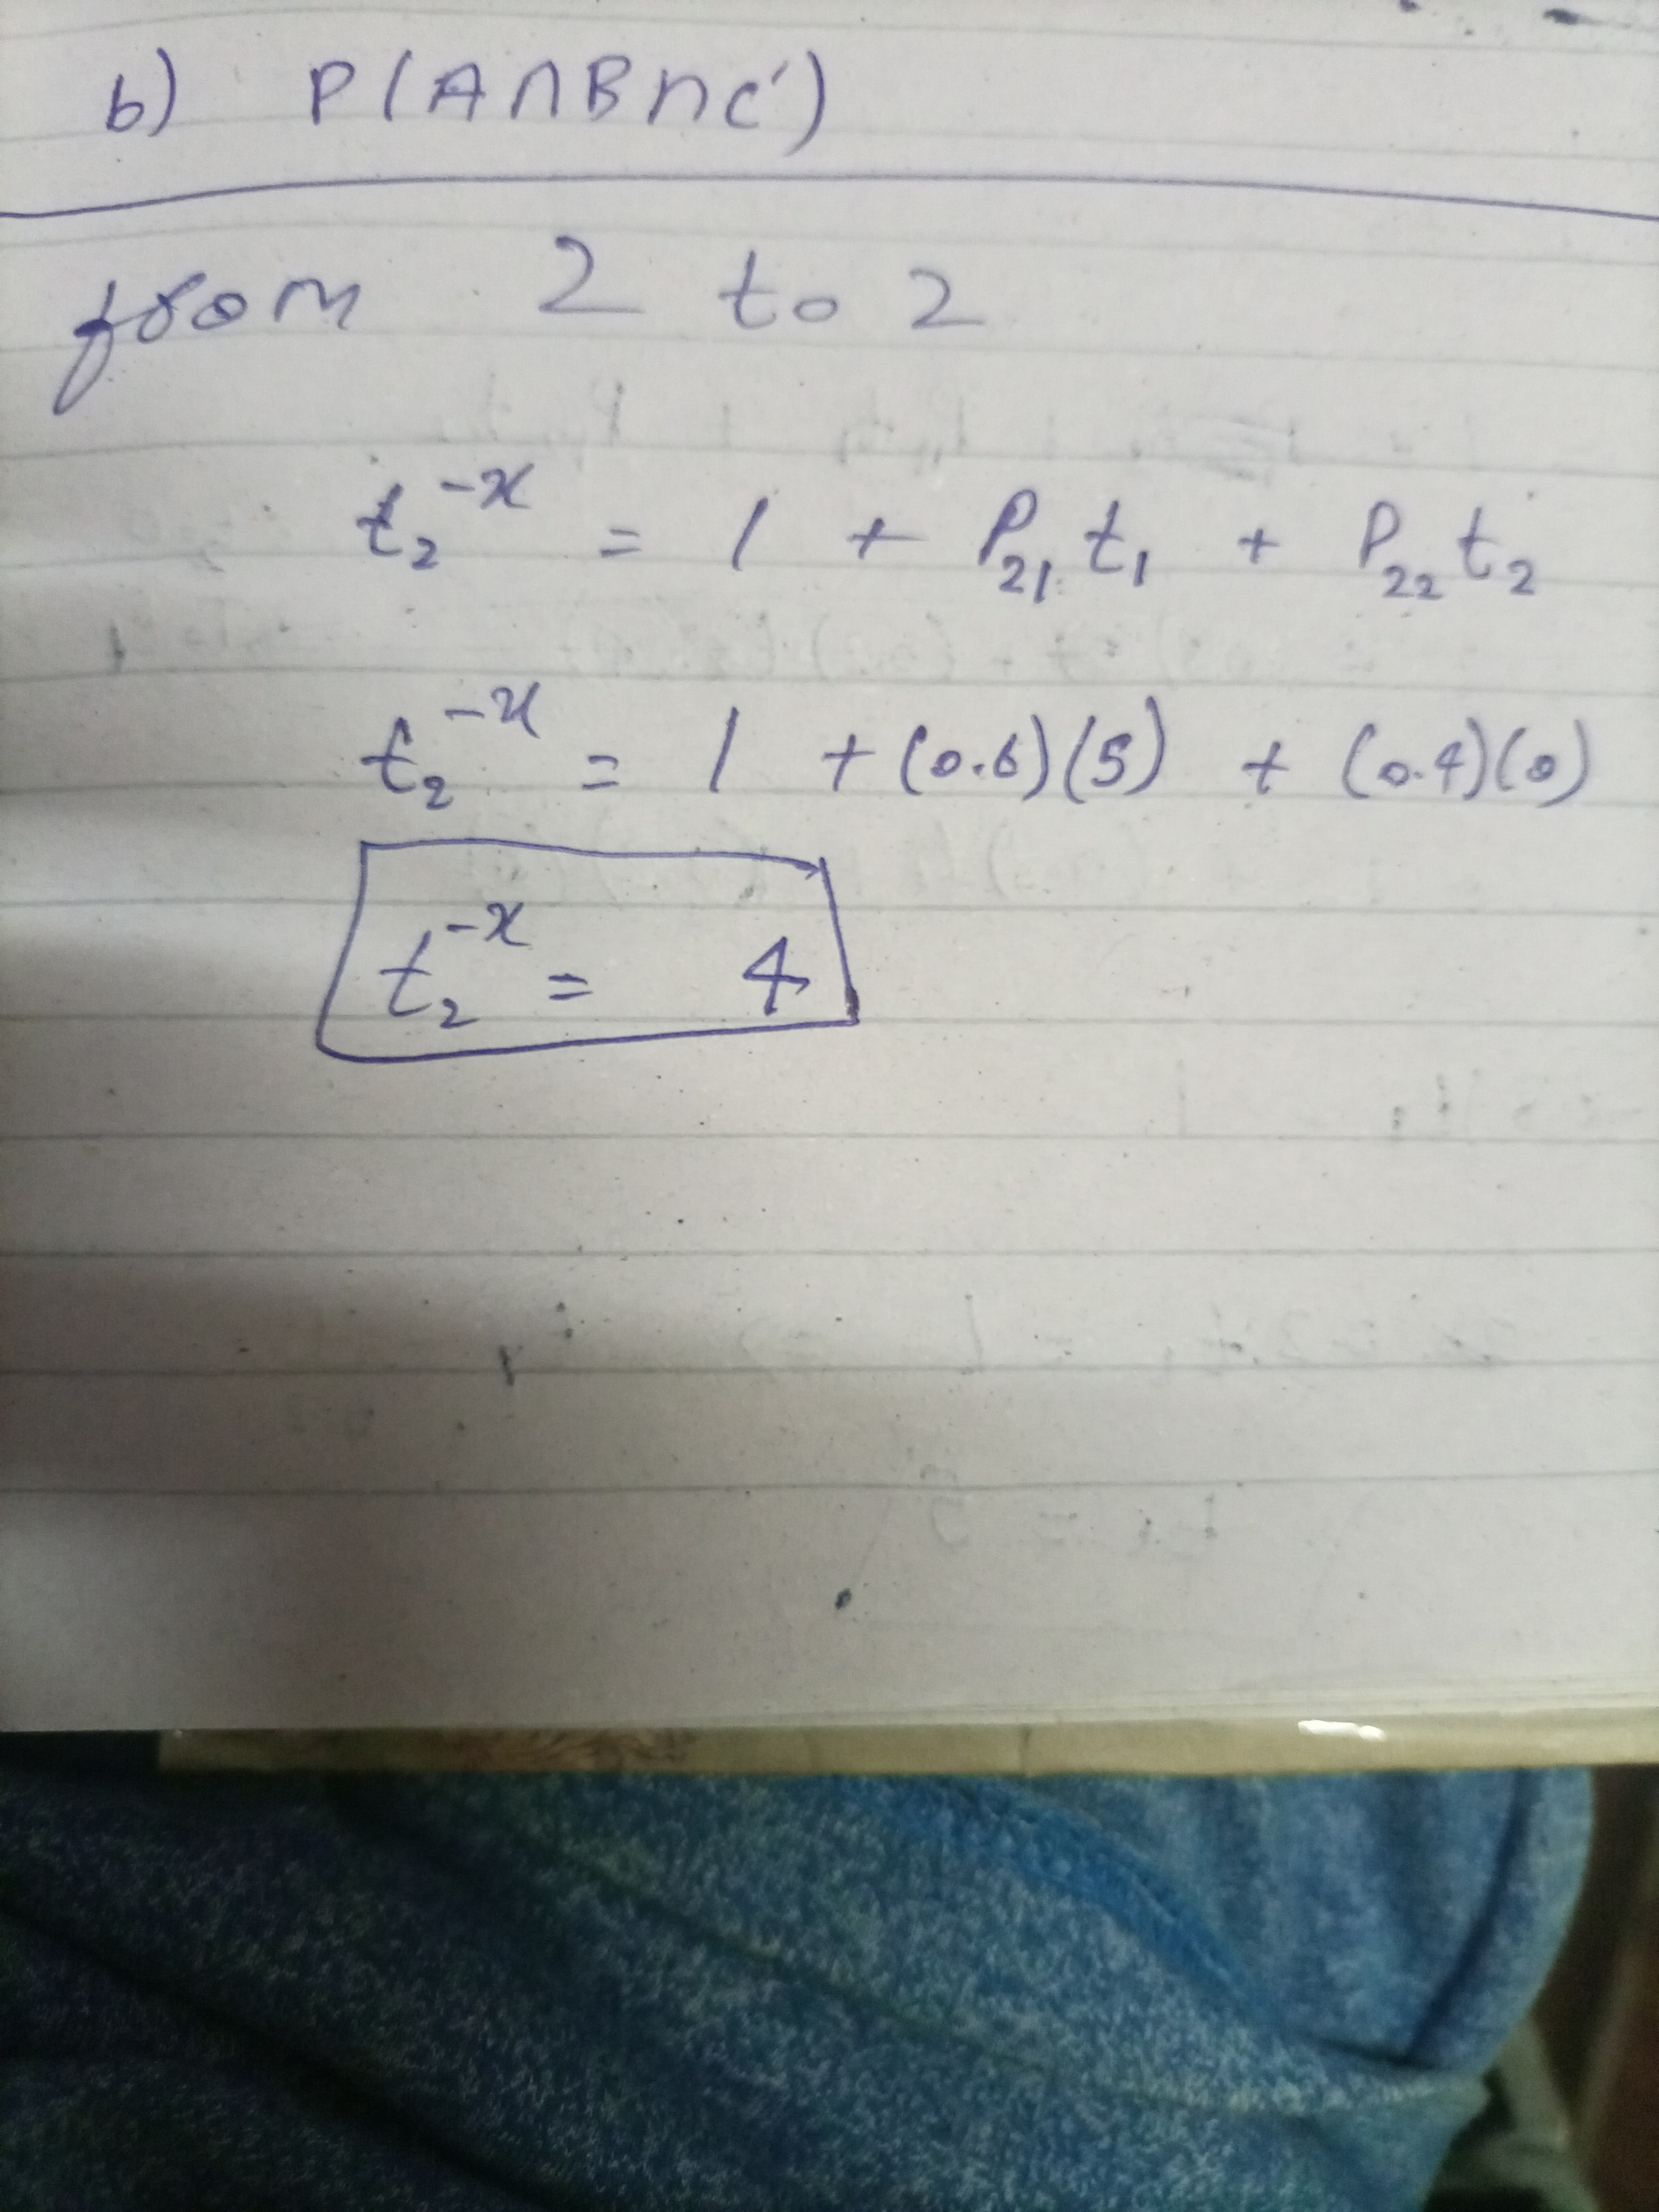 b) P(A∩B∩C')
from 2 to 2
t₂⁻ˣ = 1 + P₂₁ t₁ + P₂₂ t₂
t₂⁻ˣ = 1 + (0.6)(5) + (0.4)(0)
t₂⁻ˣ = 4